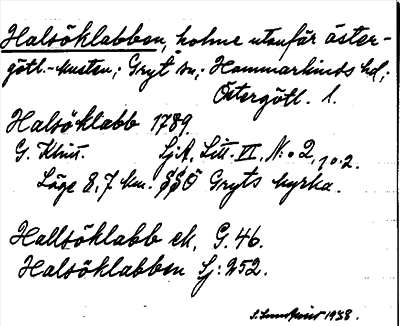 Halsöklabben, holme utanför öster-
götl.-kusten; Gryt sn; Hammarkinds hd;
Östergötl. l.
Halsöklabb 1789.
G. Klint. SjA, Litt. II, N:o 2, 10.2.
Läge 8,7 km. SSÖ Gryts kyrka.
Hallsöklabb ek, G. 46.
Halsöklabben Sj: 252.
1938.